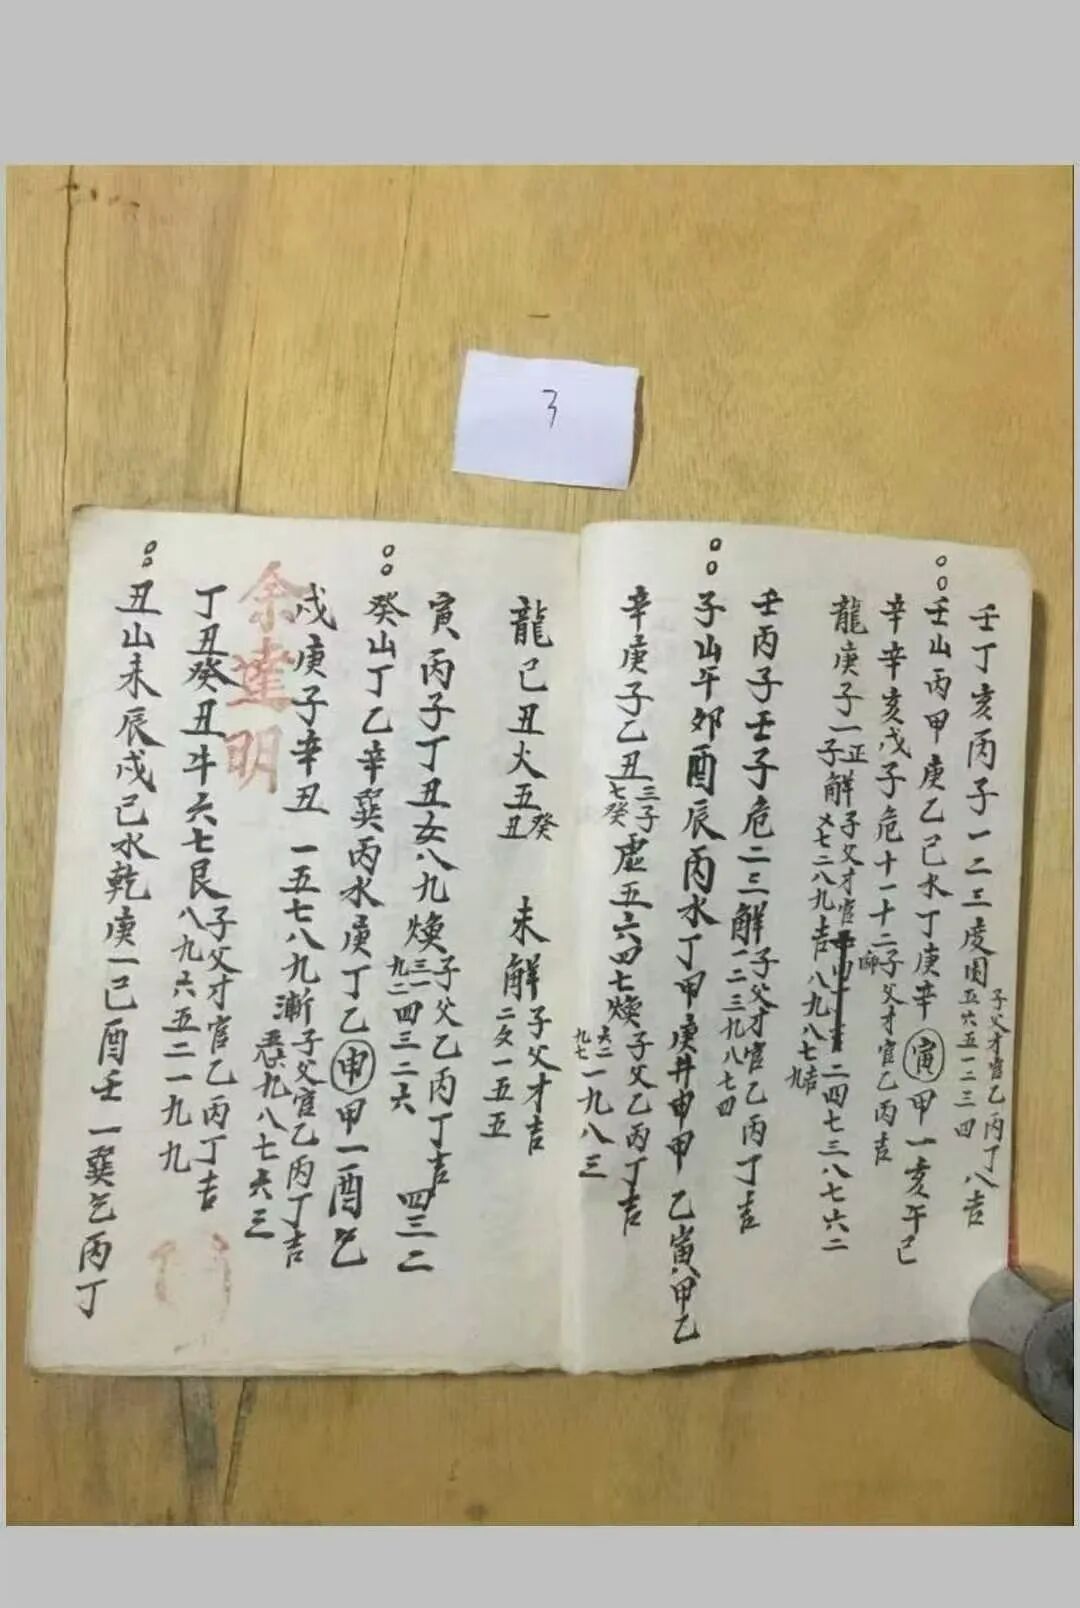 3
壬丁亥丙子一二三度困子父才官乙丙丁八吉
五六五一二三四
壬山丙甲庚乙己水丁庚辛寅甲一亥午己
辛辛亥戊子危十一十二子父才官乙丙吉
龍庚子一正子解子父才官
七二八九吉八九八七吉九
二四七三八七六二
壬丙子壬子危二三解子父才官乙丙丁吉
一二三九八七四
子山午邜酉辰丙水丁甲庚井申甲乙寅甲乙
辛庚子乙丑三子七癸虛五六四七煥子父乙丙丁吉
六二九七一九八三
龍己丑火五癸丑 未解子父才吉
二文一五五
寅丙子丁丑女八九煥子父乙丙丁吉
三一九二四三二六 四三二
癸山丁乙辛巽丙水庚丁乙申甲一酉乙
戊庚子辛丑一五七八九漸子父官乙丙丁吉
九八七六三
余達明
丁丑癸丑牛六七艮子父才官乙丙丁吉
八九六五二一九九
丑山未辰戌己水乾庚一己酉壬一巽乞丙丁